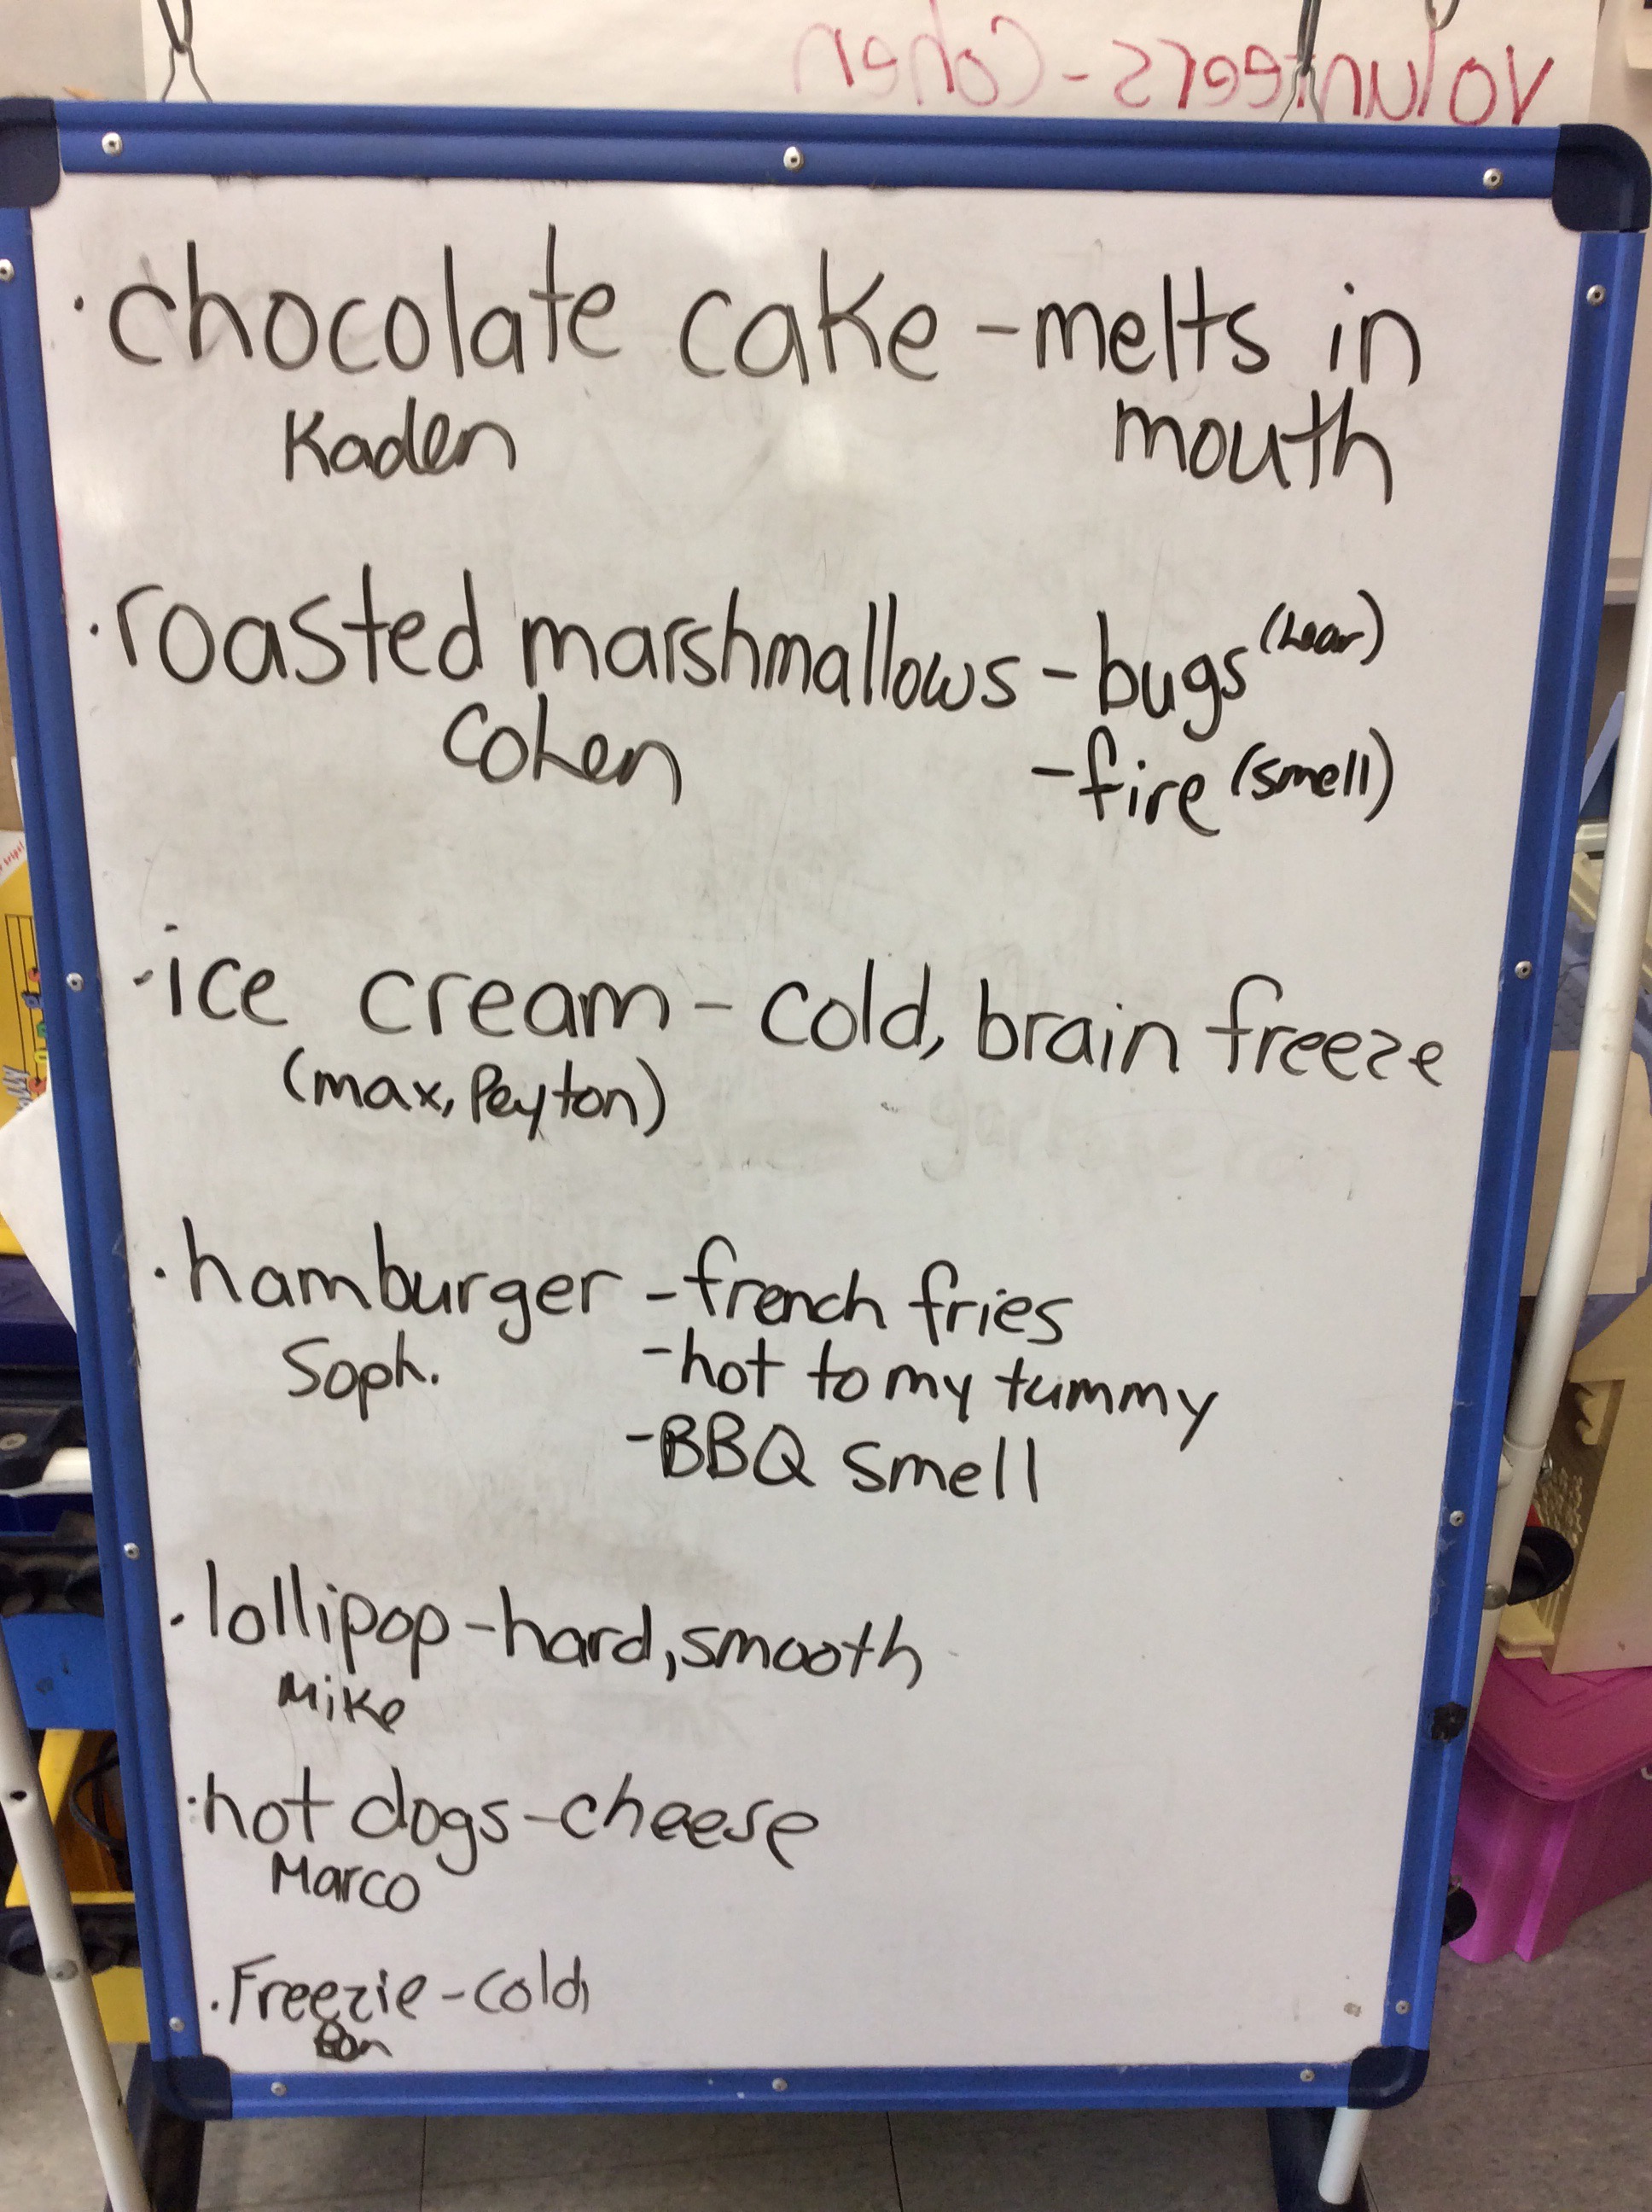 Volunteers - Cohen
· chocolate cake - melts in
Kaden mouth
· roasted marshmallows - bugs (hear)
Cohen - fire (smell)
· ice cream - cold, brain freeze
(max, Peyton)
· hamburger - french fries
Soph. - hot to my tummy
- BBQ smell
· lollipop - hard, smooth
Mike
· hot dogs - cheese
Marco
· Freezie - cold,